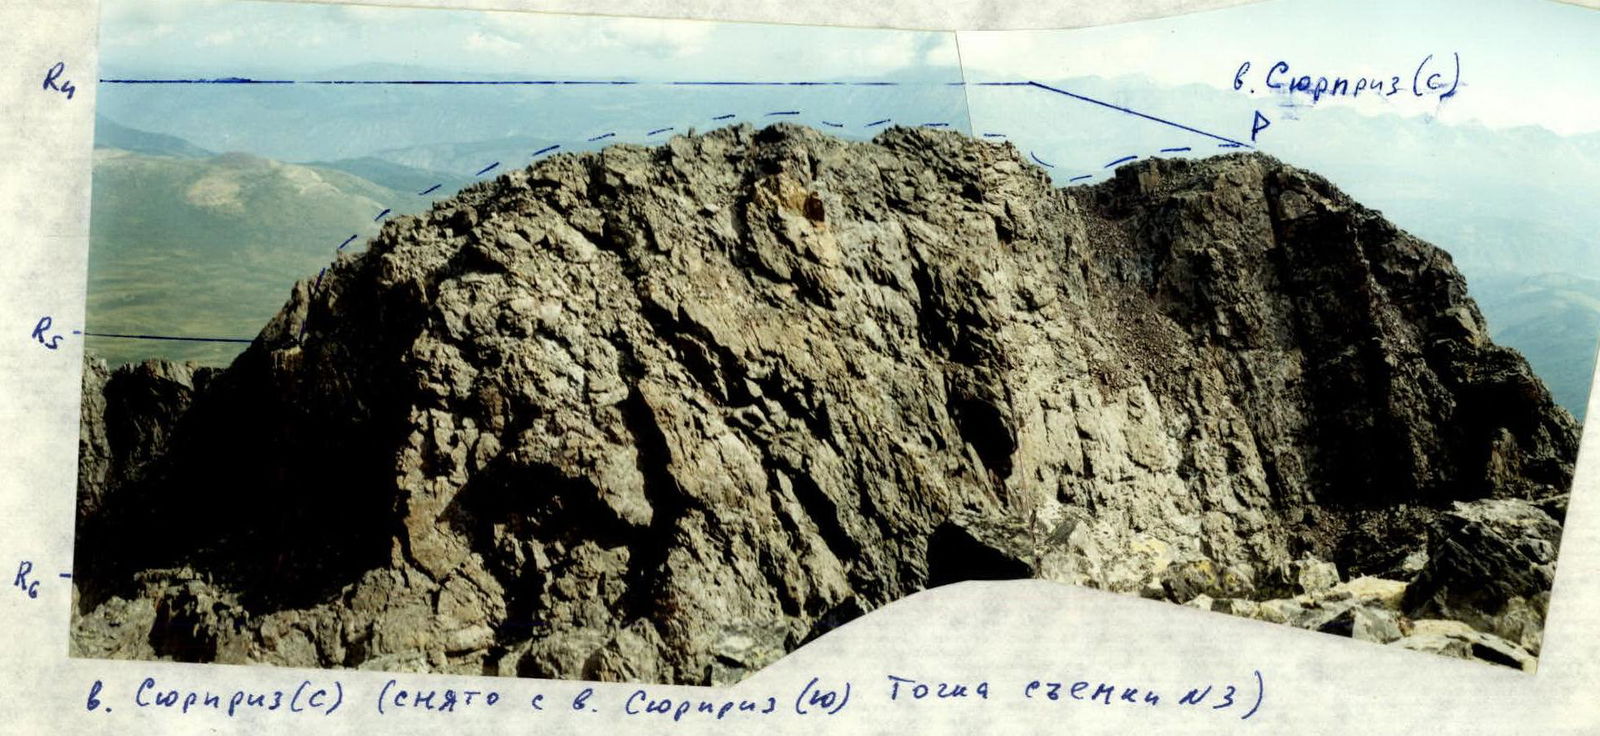 R₄
в. Сюрприз(с)
R₅
R₆
в. Сюрприз(с) (снято с в. Сюрприз (ю) Точка съемки №3)